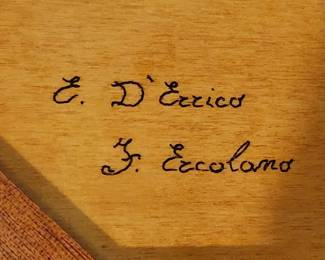 E. D'Errico
F. Ercolano